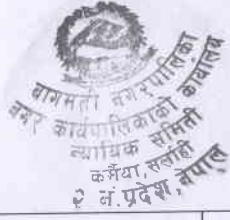 बागमती नगरपालिका
नगर कार्यपालिकाको कार्यालय
न्यायिक समिती
कर्मैया, सर्लाही
२ नं. प्रदेश, नेपाल